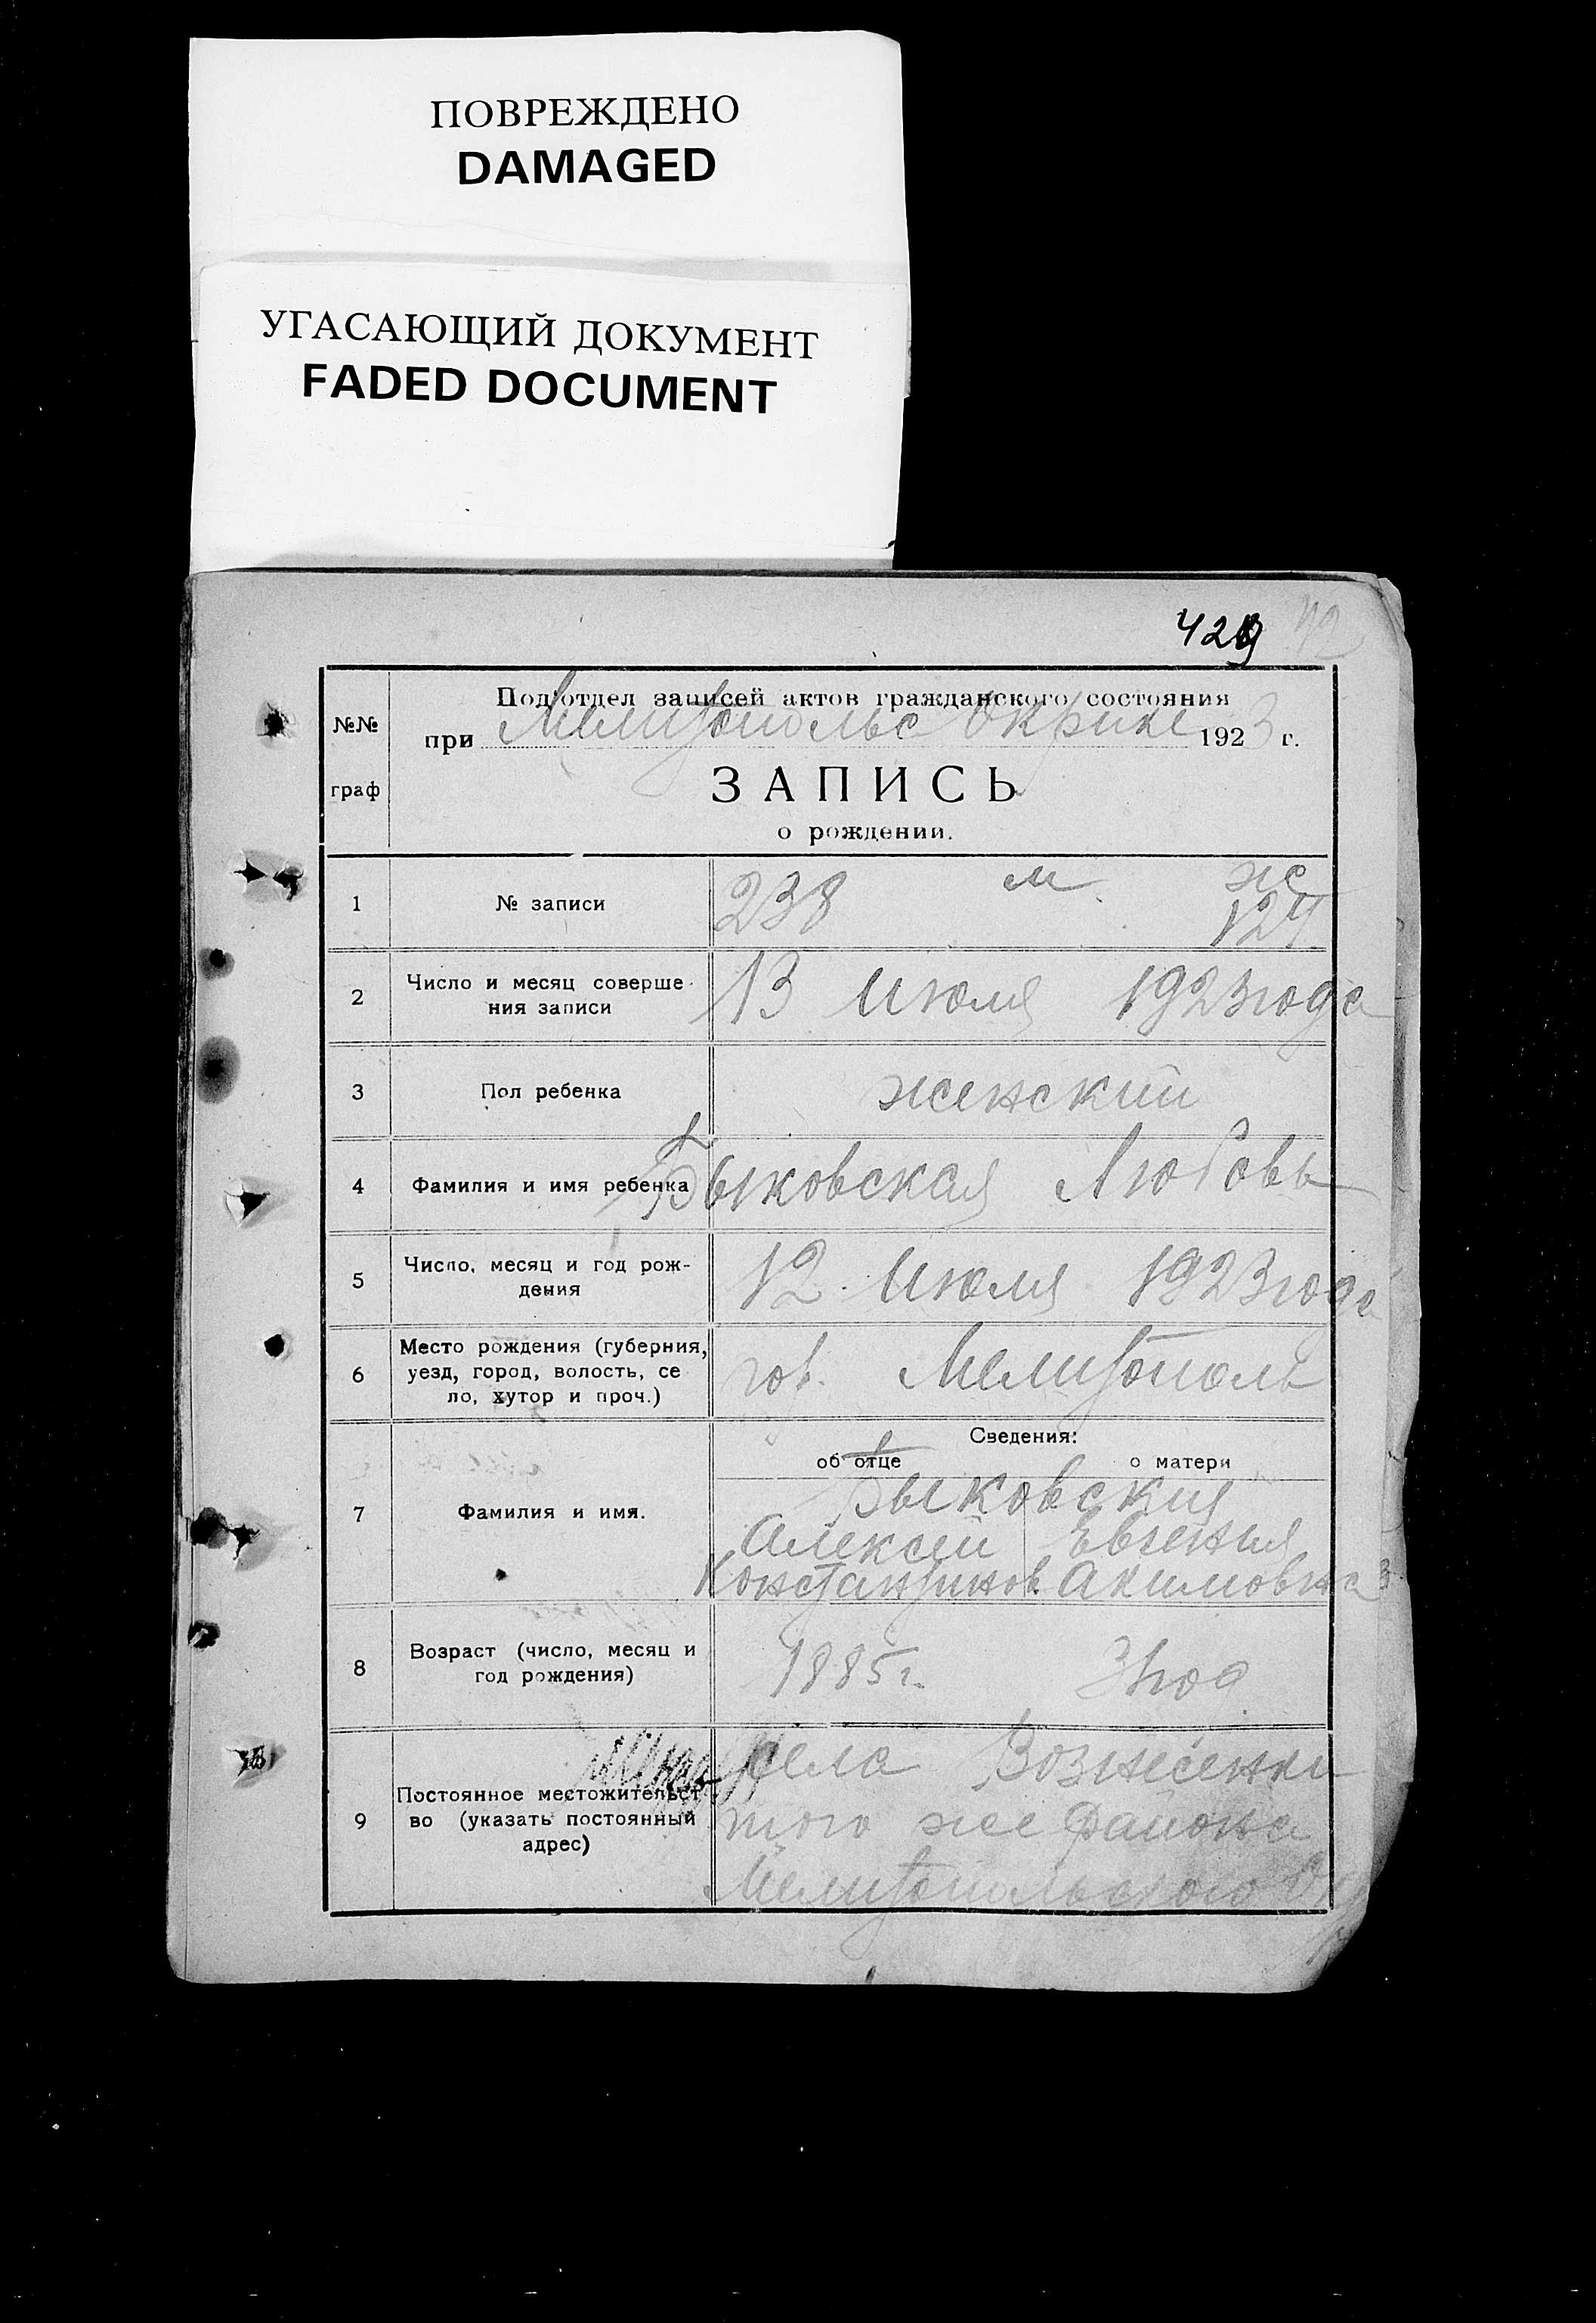 ПОВРЕЖДЕНО
DAMAGED
УГАСАЮЩИЙ ДОКУМЕНТ
FADED DOCUMENT
42
Подотдел записей актов гражданского состояния
№№ граф
при Мелитопольс Окрике 1923 г.
ЗАПИСЬ
о рождении.
1 № записи 238 м ж 124
2 Число и месяц соверше-
ния записи 13 Июля 1923 года
3 Пол ребенка женский
4 Фамилия и имя ребенка Быковская Любовь
5 Число, месяц и год рож-
дения 12 Июля 1923 года
6 Место рождения (губерния,
уезд, город, волость, се
ло, хутор и проч.) гор. Мелитополь
Сведения:
об отце о матери
7 Фамилия и имя. Быковския
Алексей Евгения
Константинов. Акимовна
8 Возраст (число, месяц и
год рождения) 1885 г. год
села Вознесенки
9 Постоянное местожительст
во (указать постоянный
адрес) того же района
Мелитопольского